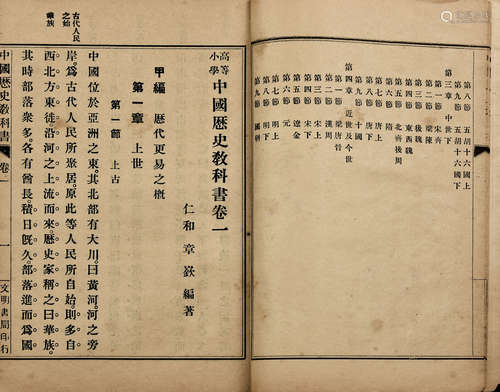 第八節 五胡十六國上
第九節 五胡十六國下
第三章 中世下
第一節 宋齊
第二節 梁陳
第三節 後魏
第四節 東西魏
第五節 北齊後周
第六節 隋
第七節 唐上
第四章 近世及今世
第一節 梁唐晉
第二節 漢周
第三節 宋上
第四節 宋下
第五節 遼金
第六節 元
第七節 明上
第八節 明下
第九節 國朝
高等小學中國歷史教科書卷一
仁和章嶔編著
甲編 歷代更易之概
第一章 上世
第一節 上古
古代人民之始
中國位於亞洲之東其北部有大川曰黃河河之旁
岸爲古代人民所聚居原此等人民所自始則多自
華族
西北方東徒沿河之上流而來歷史家稱之曰華族
其時部落衆多各有酋長積日旣久部落進而爲國
中國歷史教科書 卷一 一 文明書局印行